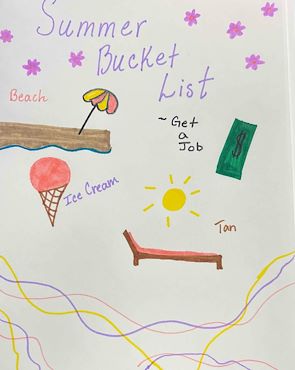 Summer
Bucket
List
Beach
~ Get
a
Job
$
Ice Cream
Tan